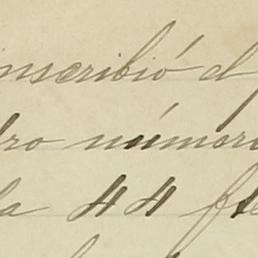 inscribió el
dro número
la 44 fte